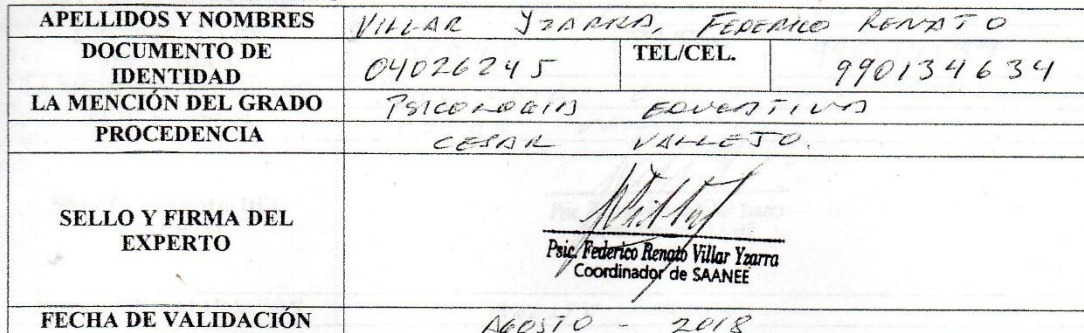 APELLIDOS Y NOMBRES VILLAR YZARRA, FEDERICO RENATO
DOCUMENTO DE IDENTIDAD 04026245 TEL/CEL. 990134634
LA MENCIÓN DEL GRADO PSICOLOGIA EDUCATIVA
PROCEDENCIA CESAR VALLEJO.
SELLO Y FIRMA DEL EXPERTO
Psic. Federico Renato Villar Yzarra
Coordinador de SAANEE
FECHA DE VALIDACIÓN AGOSTO - 2018